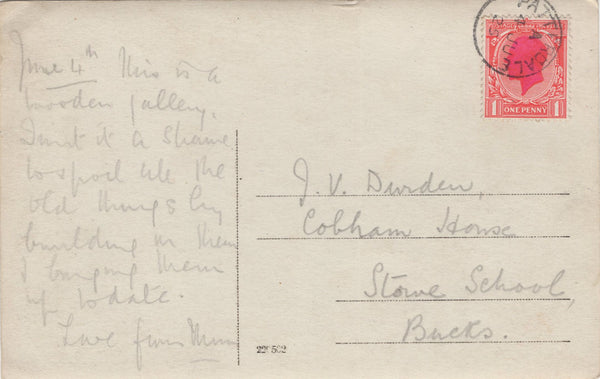 June 4th This is a
wooden gallery.
Isn't it a shame
to spoil all the
old things by
building in them
& bringing them
up to date.
Love from Mum
J. V. Durden,
Cobham House
Stowe School,
Bucks.
220502
PATELEY
4 JU
1 ONE PENNY 1